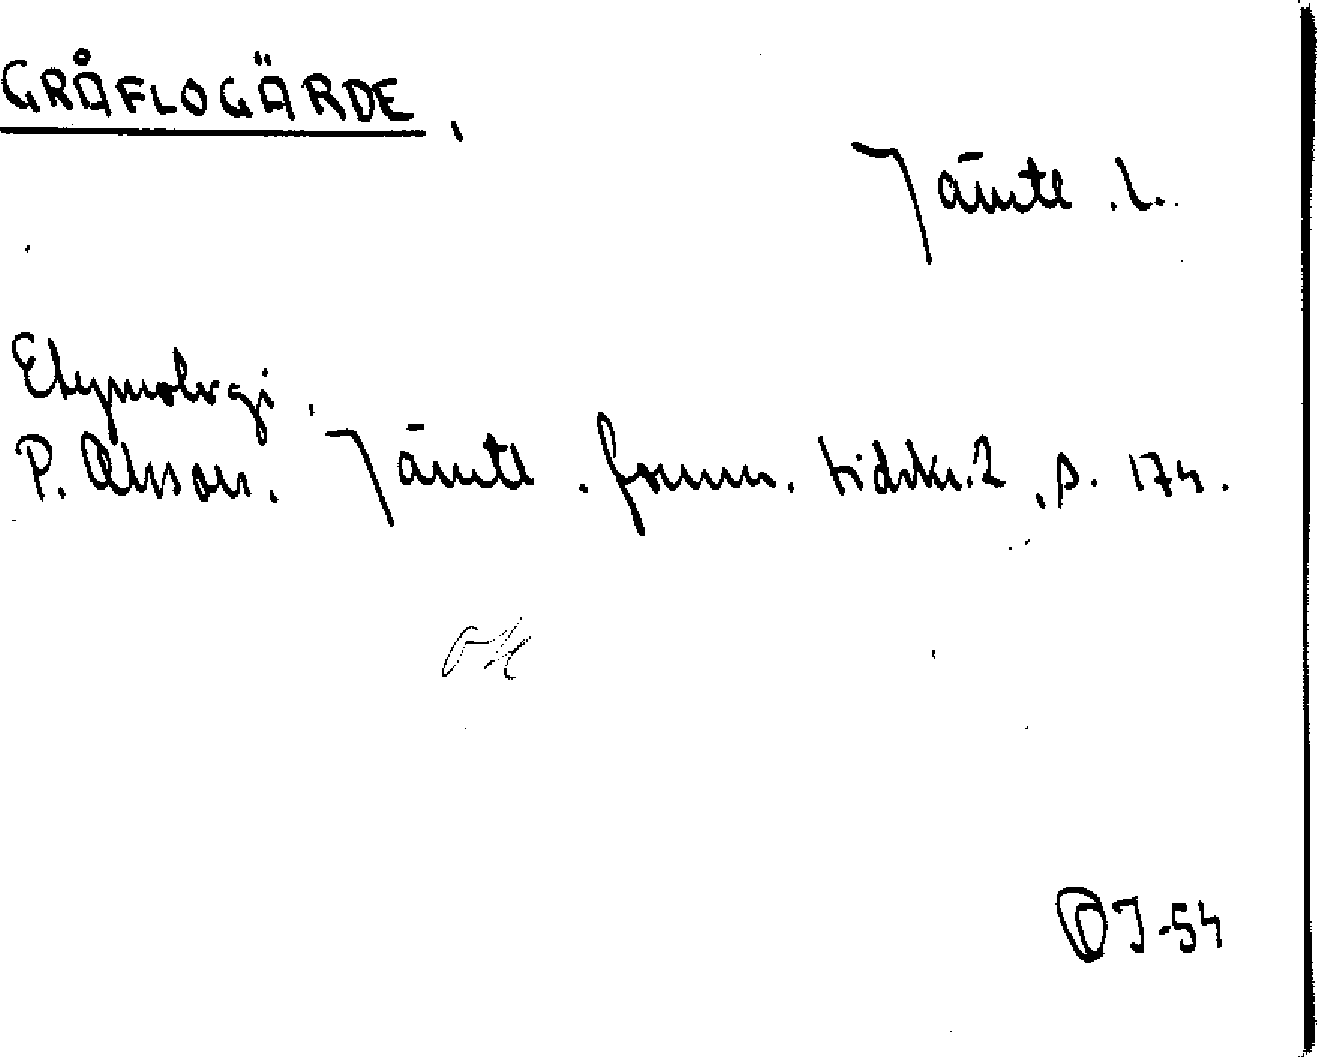 GRÅFLOGÄRDE,
Jämtl. l.
Etymologi.
P. Olsson. Jämtl. fornm. tidskr. 2, s. 174.
OJ-54